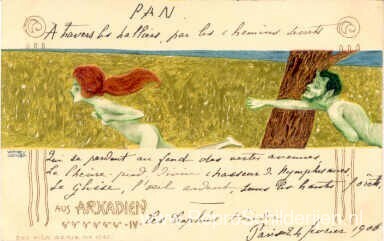 PAN
A travers les halliers, par les chemins
Qui se perdent au fond des vertes avenues,
Le chèvre-pied, divin chasseur de Nymphes nues,
Se glisse, l'œil ardent, sous les hautes forêts
AUS ARKADIEN
IV
Paris 24 février 1900